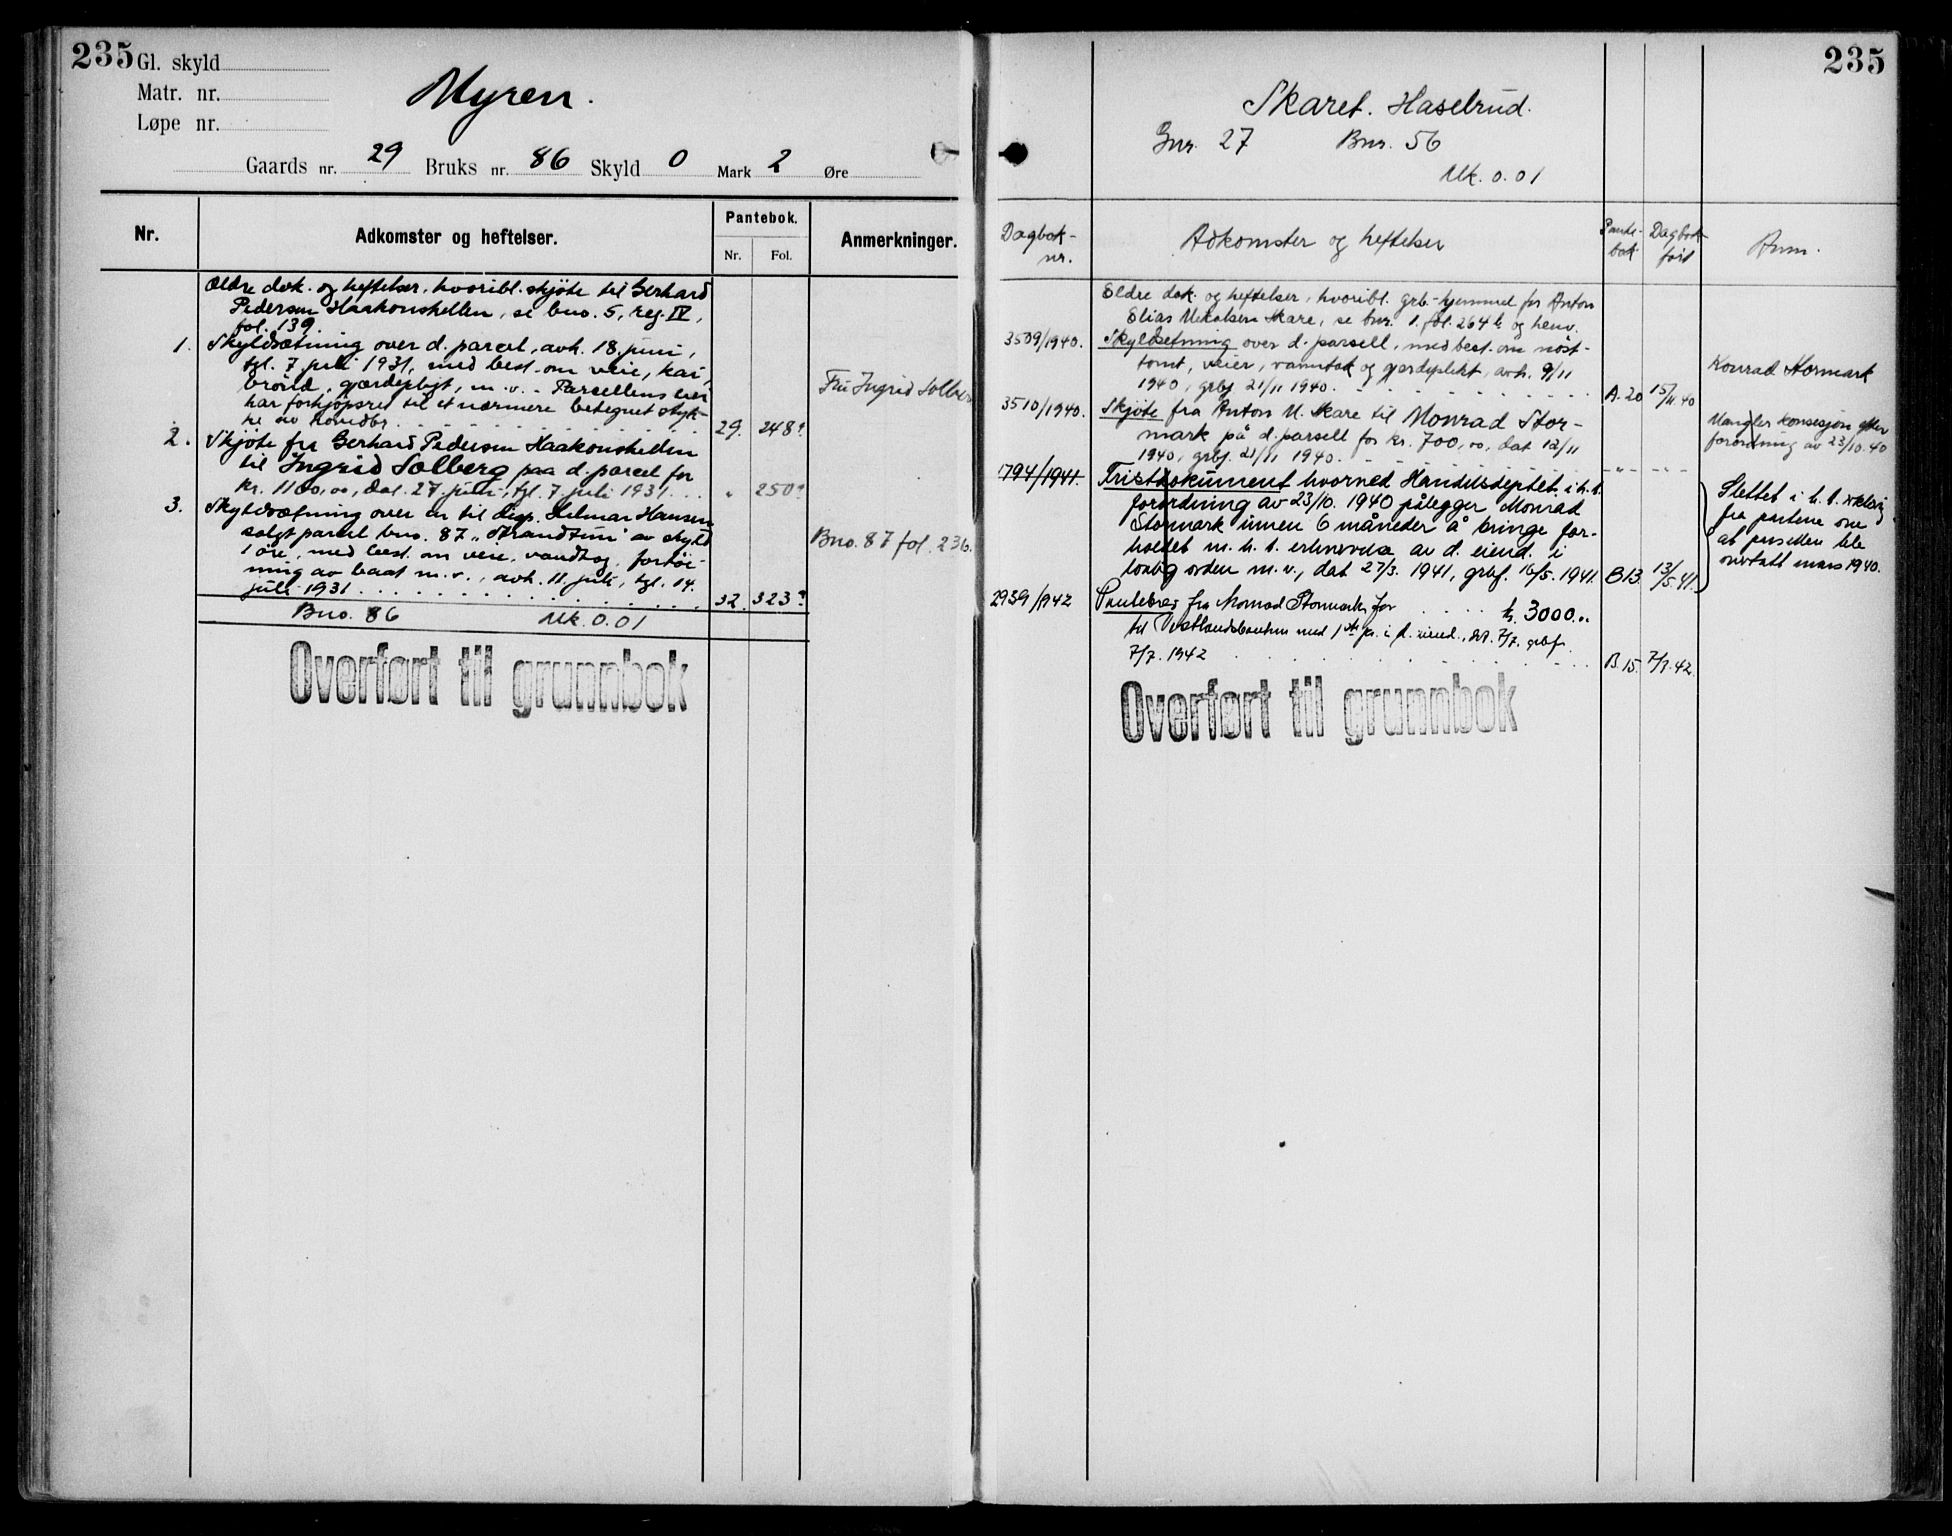 235
Gl. skyld
Matr. nr.
Løpe nr.
Myren.
Gaards nr. 29 Bruks nr. 86 Skyld 0 Mark 2 Øre
Nr.
Adkomster og heftelser.
Pantebok.
Nr. Fol.
Anmerkninger.
Ældre dok. og heftelser, hvoribl. skjøte til Gerhard
Pedersen Haakonshellen, se bno. 5, reg. IV,
fol. 139.
1. Skyldsætning over d. parcel, avh. 18. juni,
tgl. 7. juli 1931, med best. om veie, kai,
brønd, gjærdepligt, m.v. - Parsellens eier
har forkjøpsret til et nærmere betegnet styk-
ke av hovedbr. 29. 248?
Fru Ingrid Solberg
2. Skjøte fra Gerhard Pedersen Haakonshellen
til Ingrid Solberg paa d. parcel for
kr. 1100,00, dat. 27. juni, tgl. 7. juli 1931. " 250?
3. Skyldsætning over en til disp. Hilmar Hansen
solgt parcel bno. 87 „Strandtun" av skyld
1 øre, med best. om veie, vandtag, fortøi-
ning av baat m.v., avh. 11. juli, tgl. 14.
juli 1931 32. 323?
Bno. 87 fol. 236.
Bno. 86 Mk. 0.01
Overført til grunnbok
235
Skaret. Haselrud.
Gnr. 27 Bnr. 56
Mk. 0.01
Dagbok-
nr.
Adkomster og heftelser
Pante-
bok
Dagbok
ført
Anm.
Eldre dok. og heftelser, hvoribl. grb.-hjemmel for Anton
Elias Nikolsen Skare, se bnr. 1. fol. 264 b og henv.
3509/1940. Skyldsetning over d. parsell, med best. om nøst-
tomt, veier, vanntak og gjerdeplikt, avh. 9/11
1940, grbf. 21/11 1940. A. 20 15/11.40
Konrad Stormark
3510/1940. Skjøte fra Anton N. Skare til Monrad Stor-
mark på d. parsell for kr. 700,00, dat 12/11
1940, grbf. 21/11 1940. -"- -"-
Mangler konsesjon efter
forordning av 23/10.40
1794/1941. Fristdokument hvorved Handelsdeptet. i h.t.
forordning av 23/10. 1940 pålegger Monrad
Stormark innen 6 måneder å bringe for-
holdet m.h.t. ervervelse av d. eiend. i
lovlig orden m.v., dat 27/3. 1941, grbf. 16/5. 1941. B13. 13/5.41.
Slettet i h.t. erklæring
fra partene om
at parsellen ble
overtatt mars 1940.
2939/1942 Pantebrev fra Monrad Stormark for kr. 3000.00
til Vestlandsbanken med 1ste pr. i d. eiend., dat. 7/7. grbf.
7/7. 1942 B. 15. 7/7.42.
Overført til grunnbok